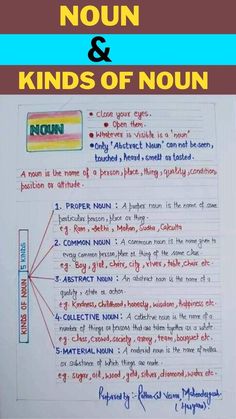 NOUN
&
KINDS OF NOUN
NOUN
• Close your eyes.
• Open them.
• Whatever is visible is a "noun"
• Only "Abstract Noun" can not be seen, touched, heard, smelt or tasted.
A noun is the name of a person, place, thing, quality, condition, position or attitude.
KINDS OF NOUN
5 KINDS
1. PROPER NOUN : A proper noun is the name of some particular person, place or thing.
e.g. Ram, Delhi, Mohan, Sudha, Calcutta
2. COMMON NOUN : A common noun is the name given to every common person, place or thing of the same class.
e.g. Boy, girl, chair, city, river, table, chair etc.
3. ABSTRACT NOUN : An abstract noun is the name of a quality, state or action.
e.g. Kindness, childhood, honesty, wisdom, happiness etc.
4. COLLECTIVE NOUN : A collective noun is the name of a number of things or persons that are taken together as a whole
e.g. class, crowd, society, army, team, bouquet etc.
5. MATERIAL NOUN : A material noun is the name of matter or substance of which things are made.
e.g. sugar, oil, wood, gold, silver, diamond, water etc.
Prepared by :-